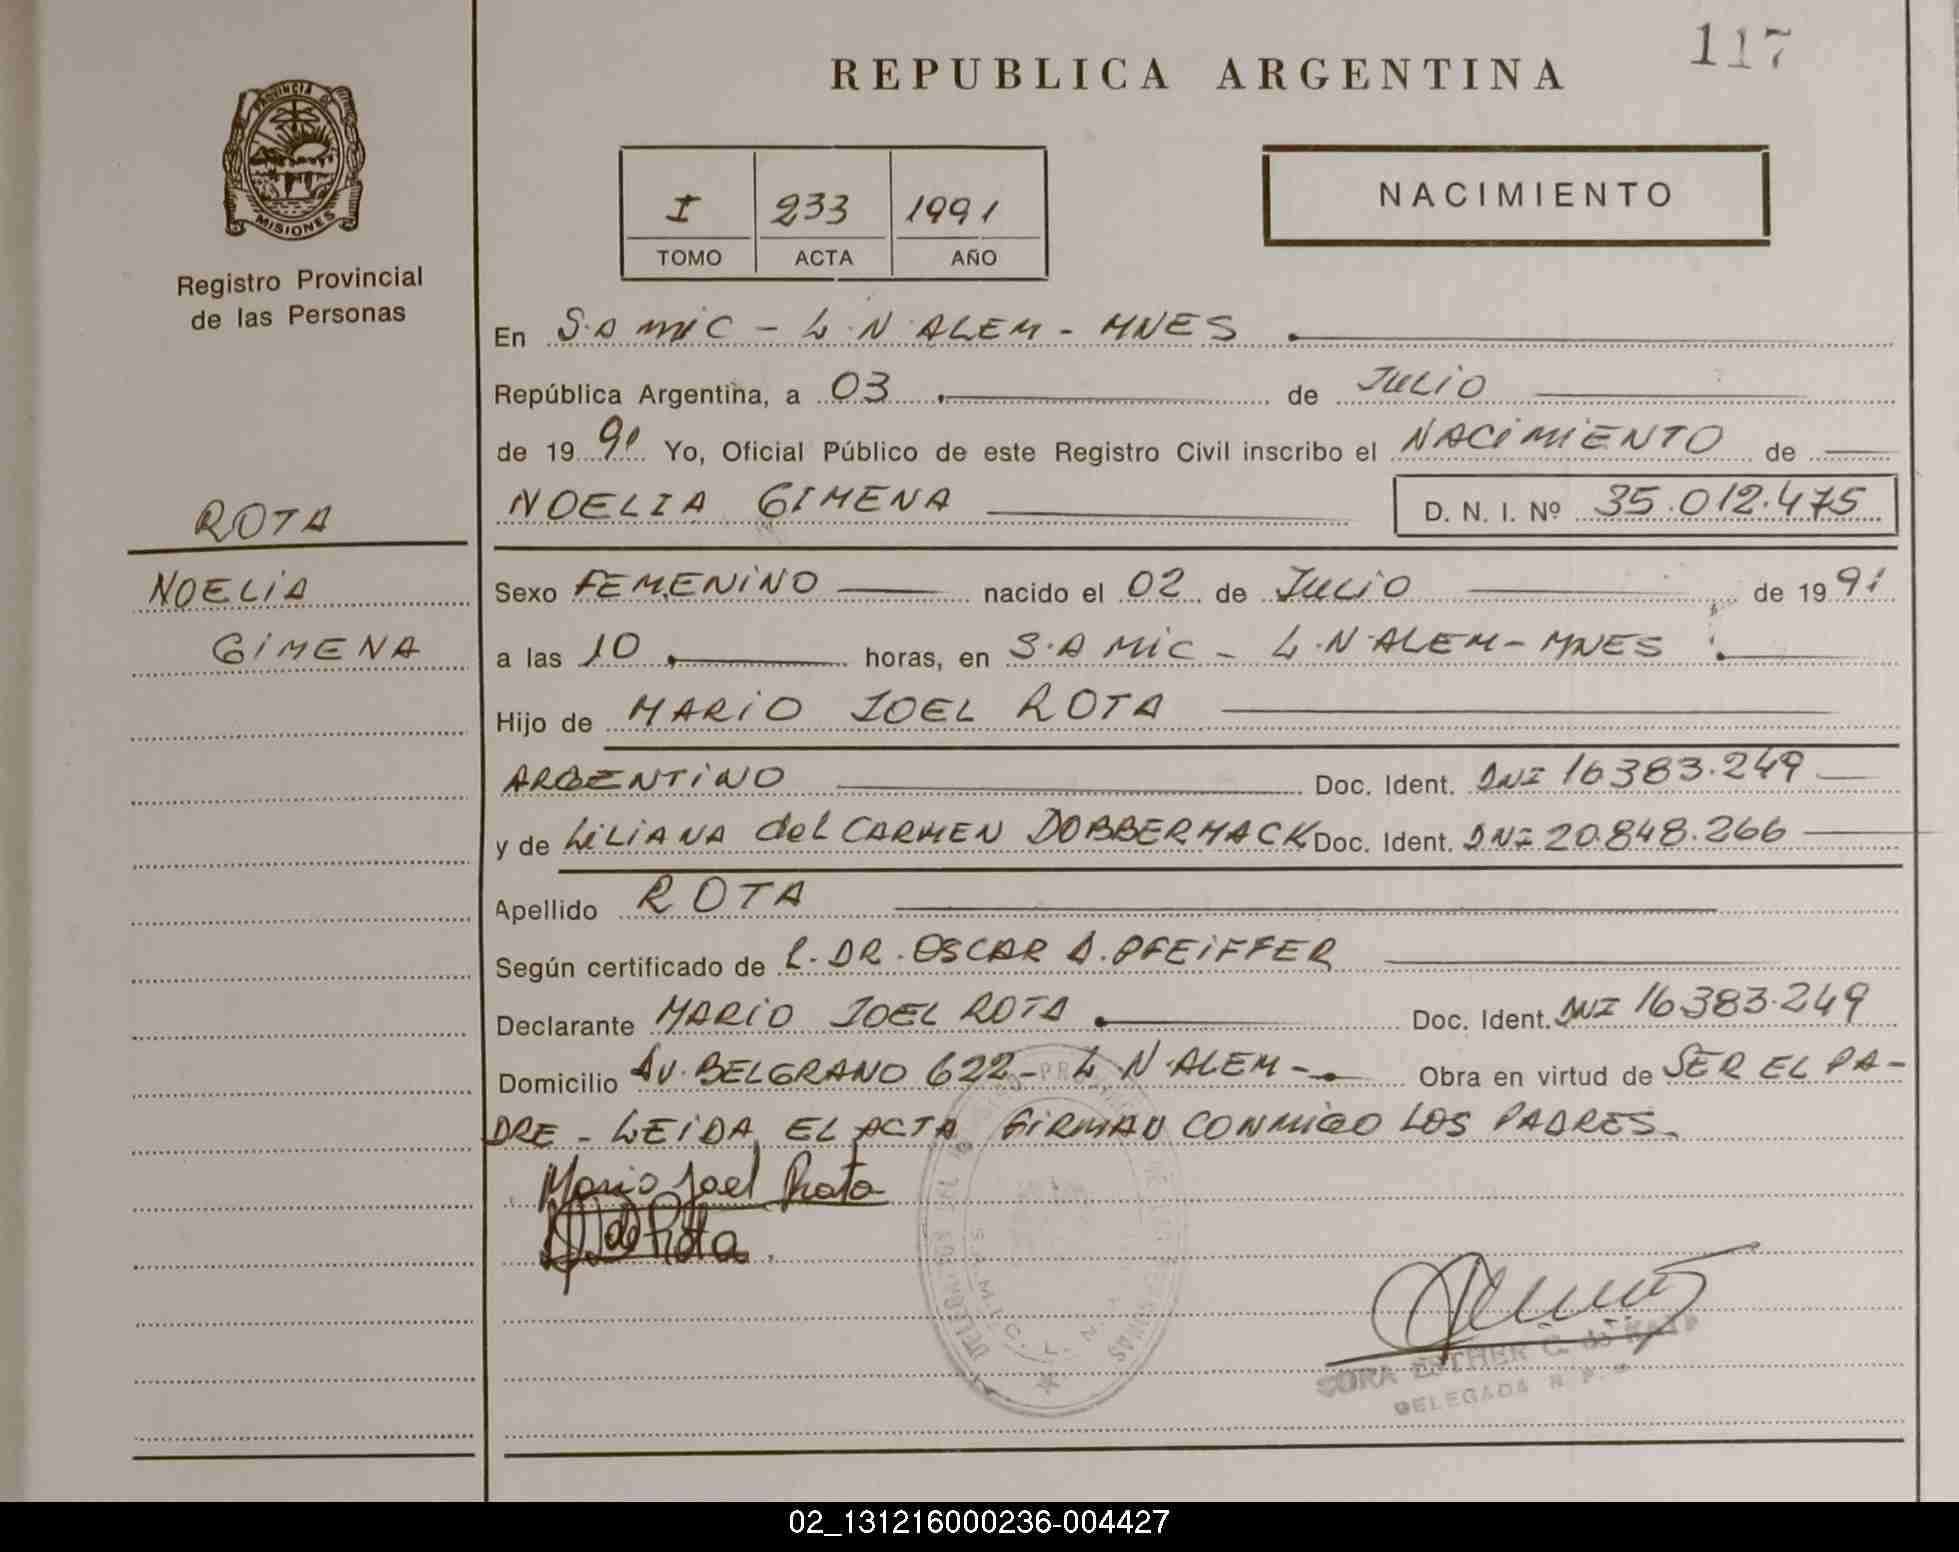 117
REPUBLICA ARGENTINA
PROVINCIA DE
MISIONES
Registro Provincial
de las Personas
I 233 1991
TOMO ACTA AÑO
NACIMIENTO
En S.A MIC - L.N.ALEM - MNES
República Argentina, a 03 de JULIO
de 19 91 Yo, Oficial Público de este Registro Civil inscribo el NACIMIENTO de
NOELIA GIMENA D. N. I. Nº 35.012.475
ROTA
NOELIA
GIMENA
Sexo FEMENINO nacido el 02 de JULIO de 19 91
a las 10 horas, en S.A MIC - L.N.ALEM - MNES
Hijo de MARIO JOEL ROTA
ARGENTINO Doc. Ident. DNI 16383.249
y de LILIANA del CARMEN DOBBERMACK Doc. Ident. DNI 20.848.266
Apellido ROTA
Según certificado de L. DR. OSCAR A. PFEIFFER
Declarante MARIO JOEL ROTA Doc. Ident. DNI 16383.249
Domicilio AV. BELGRANO 622 - L N.ALEM - Obra en virtud de SER EL PA-
DRE - LEIDA EL ACTA FIRMAN CONMIGO LOS PADRES.
Mario Joel Rota
de Rota
ESTHER C. de
DELEGADA R. P.
02_131216000236-004427